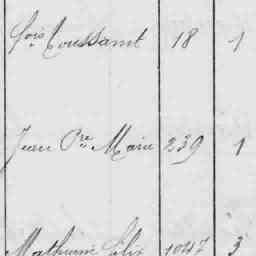 fois Toussaint 18 1
Jean Pre Marie 239 1
Mathurin Félix 1047 3